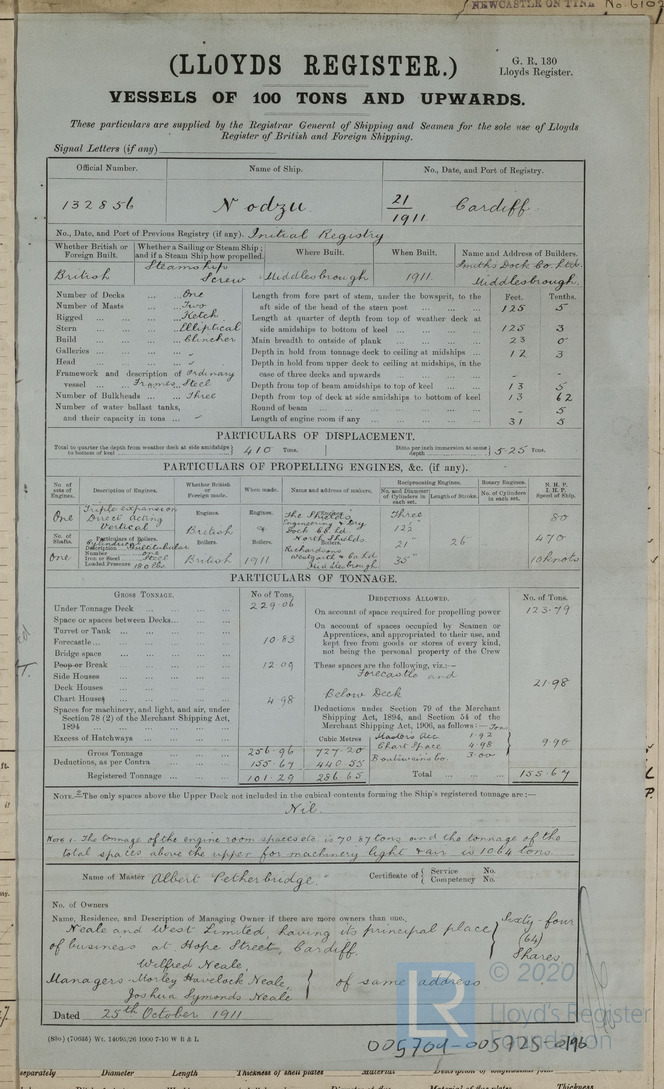 NEWCASTLE ON TYNE No 6107
(LLOYDS REGISTER.)
G. R. 130
Lloyds Register.
VESSELS OF 100 TONS AND UPWARDS.
These particulars are supplied by the Registrar General of Shipping and Seamen for the sole use of Lloyds
Register of British and Foreign Shipping.
Signal Letters (if any)
Official Number. Name of Ship. No., Date, and Port of Registry.
132856 Nodzu 21/1911 Cardiff.
No., Date, and Port of Previous Registry (if any). Initial Registry
Whether British or Foreign Built. Whether a Sailing or Steam Ship; and if a Steam Ship how propelled. Where Built. When Built. Name and Address of Builders.
British Steamship Screw Middlesbrough 1911. Smiths Dock Co. Ltd. Middlesbrough.
Number of Decks ... ... One Length from fore part of stem, under the bowsprit, to the Feet. Tenths.
Number of Masts ... ... Two aft side of the head of the stern post ... ... ... 125 5
Rigged ... ... ... Ketch Length at quarter of depth from top of weather deck at
Stern ... ... ... Elliptical side amidships to bottom of keel ... ... ... 125 3
Build ... ... ... Clincher Main breadth to outside of plank ... ... ... 23 0
Galleries ... ... ... " Depth in hold from tonnage deck to ceiling at midships ... 12 3
Head ... ... ... " Depth in hold from upper deck to ceiling at midships, in the
Framework and description of Ordinary case of three decks and upwards ... ... ... - -
vessel ... Frames... Steel Depth from top of beam amidships to top of keel ... ... 13 5
Number of Bulkheads ... Three Depth from top of deck at side amidships to bottom of keel 13 62
Number of water ballast tanks, Round of beam ... ... ... - 5
and their capacity in tons ... " Length of engine room if any ... ... ... 31 5
PARTICULARS OF DISPLACEMENT.
Total to quarter the depth from weather deck at side amidships to bottom of keel 410 Tons. Ditto per inch immersion at same depth 5·25 Tons.
PARTICULARS OF PROPELLING ENGINES, &c. (if any).
No. of sets of Engines. Description of Engines. Whether British or Foreign made. When made. Name and address of makers. Reciprocating Engines. Rotary Engines. N. H. P. I. H. P. Speed of Ship.
No. and Diameter of Cylinders in each set. Length of Stroke. No. of Cylinders in each set.
One Triple expansion Direct Acting Vertical Engines. British Engines. The Shields Engineering & Dry Dock Co. Ld. North Shields Three 12½" 21" 35" 26" 80
No. of Shafts. Particulars of Boilers. Boilers. Boilers. Boilers. 470
One Description Cylindrical Multitubular Number one Iron or Steel Steel Loaded Pressure 180 lbs British 1911 Richardsons Westgarth & Co. Ld. Middlesbrough. 10 knots
PARTICULARS OF TONNAGE.
GROSS TONNAGE. No of Tons. DEDUCTIONS ALLOWED. No. of Tons.
Under Tonnage Deck ... ... ... 229·06 On account of space required for propelling power 123·79
Space or spaces between Decks... ... ... On account of spaces occupied by Seamen or
Turret or Tank ... ... ... Apprentices, and appropriated to their use, and
Forecastle ... ... ... 10·83 kept free from goods or stores of every kind,
Bridge space ... ... ... not being the personal property of the Crew
Poop or Break ... ... ... 12·09 These spaces are the following, viz.:—
Side Houses ... ... ... Forecastle and 21·98
Deck Houses ... ... ... Below Deck
Chart Houses ... ... ... 4·98
Spaces for machinery, and light, and air, under Deductions under Section 79 of the Merchant
Section 78 (2) of the Merchant Shipping Act, Shipping Act, 1894, and Section 54 of the
1894 ... ... ... Merchant Shipping Act, 1906, as follows:— Tons
Excess of Hatchways ... ... ... Cubic Metres Masters Acc 1·92
Gross Tonnage 256·96 727·20 Chart Space 4·98 9·90
Deductions, as per Contra ... 155·67 440·55 Boatswains So. 3·00
Registered Tonnage ... ... 101·29 286·65 Total ... ... 155·67
NOTE 2—The only spaces above the Upper Deck not included in the cubical contents forming the Ship's registered tonnage are:—
Nil.
Note 1. The tonnage of the engine room spaces etc. is 70·87 tons and the tonnage of the
total spaces above the upper for machinery light & air is 10·64 tons.
Name of Master Albert Petherbridge. Certificate of { Service No. Competency No.
No. of Owners
Name, Residence, and Description of Managing Owner if there are more owners than one.
Neale and West Limited, having its principal place Sixty-four
of business at Hope Street, Cardiff. (64)
Wilfred Neale, Shares
Managers - Morley Havelock Neale, of same address
Joshua Symonds Neale
Dated 25th October 1911
© 2020
LR
Lloyd's Register
Foundation
005704-005725-0196
eparately Diameter Length Thickness of shell plates Material